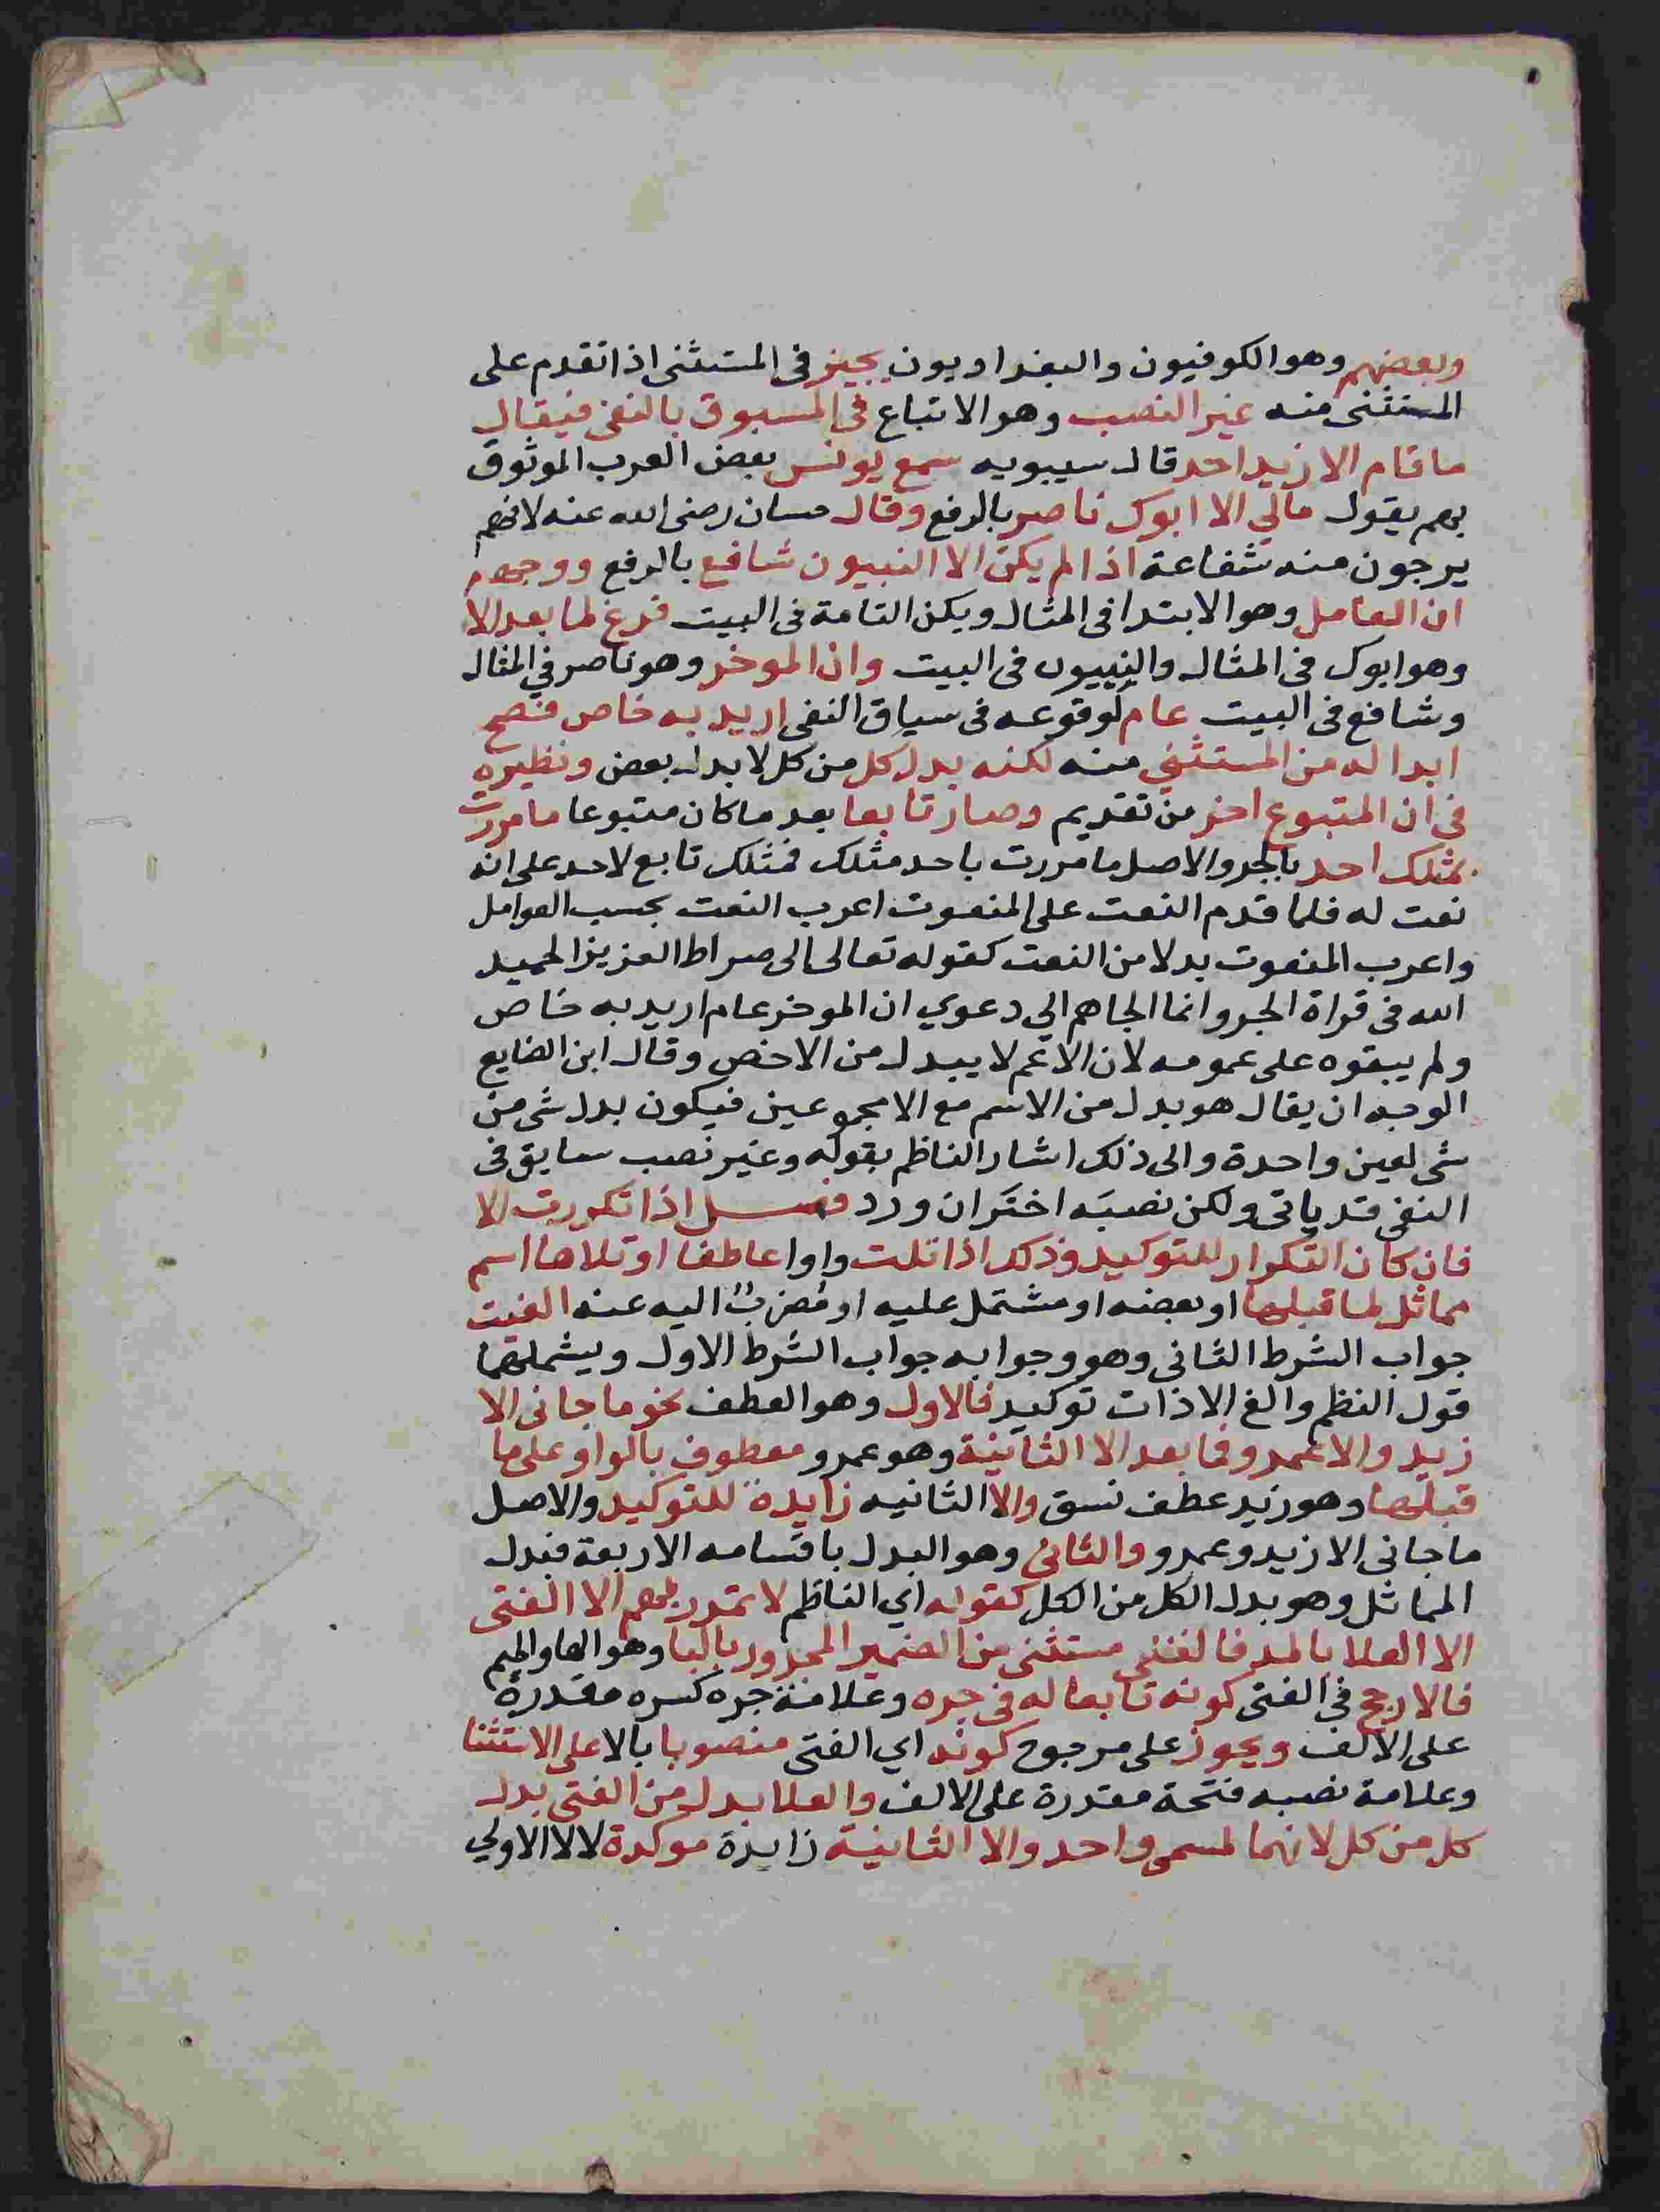 وبعضهم وهو الكوفيون والبغداديون يجيز في المستثنى اذا تقدم على
المستثنى منه غير النصب وهو الاتباع في المسبوق بالنفي فيقال
ما قام الا زيد احد قال سيبويه سمع يونس بعض العرب الموثوق
بهم يقول مالي الا ابوك ناصر بالرفع وقال حسان رضى الله عنه لانهم
يرجون منه شفاعة اذا لم يكن الا النبيون شافع بالرفع ووجهه
ان العامل وهو الابتدا في المثال ويكن التامة في البيت فرغ لما بعد الا
وهو ابوك في المثال والنبيون في البيت وان الموخر وهو ناصر في المثال
وشافع في البيت عام لوقوعه في سياق النفي اريد به خاص فصح
ابداله من المستثني منه لكنه بدل كل من كل لا بدل بعض ونظيره
في ان المتبوع اخر من تقديم وصار تابعا بعد ما كان متبوعا ما مررت
بمثلك احد بالجر والاصل ما مررت باحد مثلك فمثلك تابع لاحد على انه
نعت له فلما قدم النعت على المنعوت اعرب النعت بحسب العوامل
واعرب المنعوت بدلا من النعت كقوله تعالى الى صراط العزيز الحميد
الله في قراة الجر وانما الجاهم الي دعوي ان الموخر عام اريد به خاص
ولم يبقوه على عمومه لان الاعم لا يبدل من الاخص وقال ابن الضايع
الوجه ان يقال هو بدل من الاسم مع الا مجموعين فيكون بدل شى من
شى لعين واحدة والى ذلك اشار الناظم بقوله وغير نصب سابق في
النفي قد ياتي ولكن نصبه اختر ان ورد فصل اذا تكررت الا
فان كان التكرار للتوكيد وذلك اذا تلت واوا عاطفا او تلاها اسم
مماثل لما قبلها او بعضه او مشتمل عليه او مضرب اليه عنه الغيت
جواب الشرط الثاني وهو وجوابه جواب الشرط الاول ويشملهما
قول النظم والغ الا ذات توكيد فالاول وهو العطف نحو ما جاني الا
زيد والا عمرو فما بعد الا الثانية وهو عمرو معطوف بالواو على ما
قبلها وهو زيد عطف نسق والا الثانيه زايدة للتوكيد والاصل
ما جاني الا زيد وعمرو والثاني وهو البدل باقسامه الاربعة فبدل
المماثل وهو بدل الكل من الكل كقوله اي الناظم لا تمرر بهم الا الفتى
الا العلا بالمد فالفتى مستثنى من الضمير المجرور بالبا وهو الها والميم
فالارجح في الفتى كونه تابعا له في جره وعلامة جره كسره مقدرة
على الالف ويجوز على مرجوح كونه اي الفتى منصوبا بالا على الاستثنا
وعلامة نصبه فتحة مقدرة على الالف والعلا بدل من الفتى بدل
كل من كل لانهما لمسمى واحد والا الثانية زايدة موكدة لالا الاولي